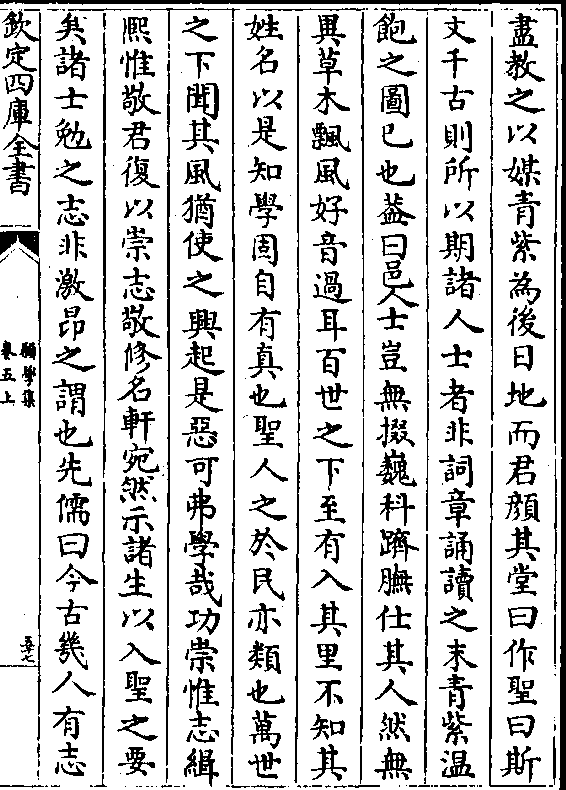 盡教之以媒青紫為後日地而君顔其堂曰作聖曰斯
文千古則所以期諸人士者非詞章誦讀之末青紫温
飽之圖已也葢曰邑人士豈無掇巍科躋膴仕其人然無
異草木飄風好音過耳百世之下至有入其里不知其
姓名以是知學固自有真也聖人之於民亦類也萬世
之下聞其風猶使之興起是惡可弗學哉功崇惟志緝
熙惟敬君復以崇志敬修名軒宛然示諸生以入聖之要
矣諸士勉之志非激昂之謂也先儒曰今古幾人有志
欽定四庫全書
卷五上